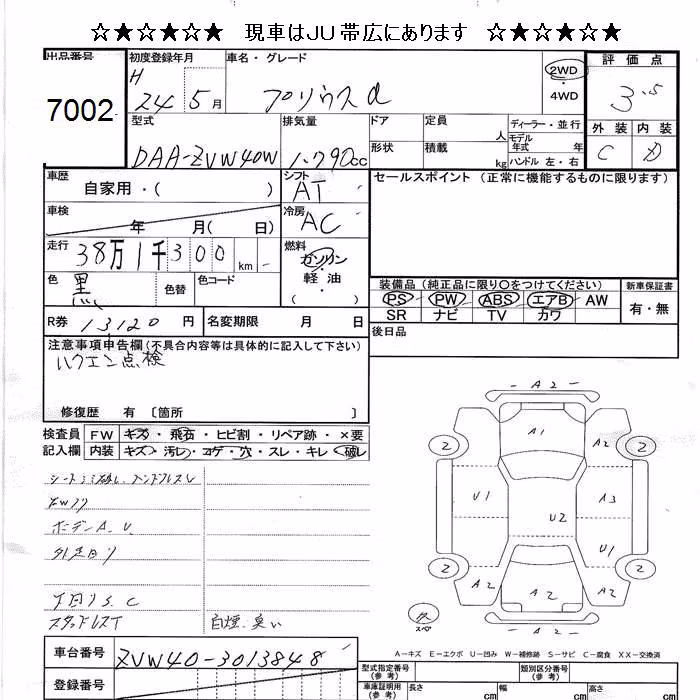 ☆★☆★☆★ 現車はJU帯広にあります ☆★☆★☆★
出品番号 初度登録年月 車名・グレード 評価点
7002 H 24年 5月 プリウスα 2WD・4WD 3.5
外装 内装
C D
型式 排気量 ドア 定員 人 ディーラー・並行
DAA-ZVW40W 1,790cc 形状 積載 kg モデル年式 年
ハンドル 左・右
車歴 シフト セールスポイント (正常に機能するものに限ります)
自家用・( ) AT
車検 冷房
年 月( 日) AC
走行 燃料
38万1千300km ガソリン・軽油・( )
色 色替 色コード 装備品(純正品に限り○をつけてください) 新車保証書
黒 PS PW ABS エアB AW 有・無
SR ナビ TV カワ
R券 13120円 名変期限 月 日 後日品
注意事項申告欄(不具合内容等は具体的に記入して下さい)
ハクエン点検
修復歴 有 〔箇所 〕
検査員 FW キズ・飛石・ヒビ割・リペア跡・×要
記入欄 内装 キズ・汚レ・コゲ・穴・スレ・キレ・破レ
A2
A1 A2
2 2
U1 A3
U2
U1
2 2
A2 A2 A2
A2
ボデーA.U
下回りS.C
スタッドレスT 白煙.臭い
スペ
A-キズ E-エクボ U-凹み W-補修跡 S-サビ C-腐食 XX-交換済
車台番号 ZVW40-3013848
登録番号
型式指定番号(参考) 類別区分番号(参考)
車庫証明用(参考) 長さ cm 幅 cm 高さ cm